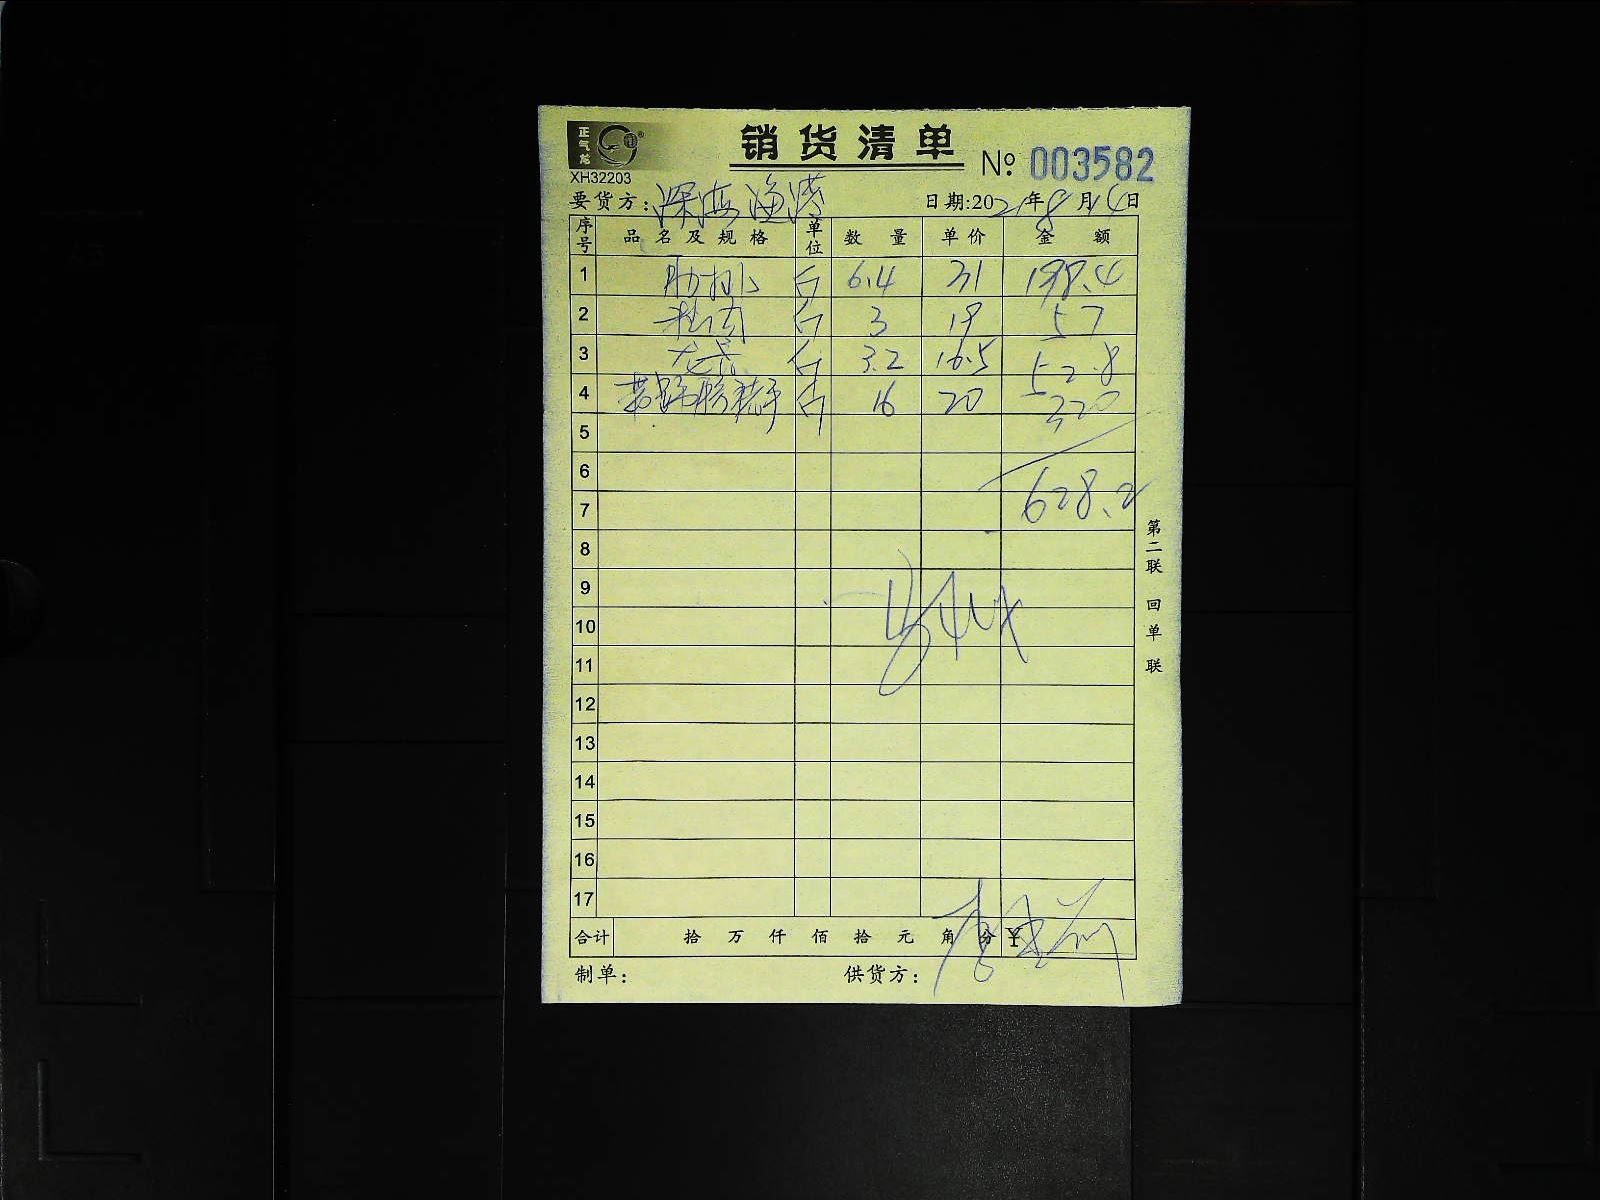 正气龙
XH32203
销货清单
№ 003582
要货方: 深海渔港 日期:2021年8月14日
序号 品名及规格 单位 数量 单价 金额
1 肋排 斤 6.4 31 198.4
2 斤 3 19 57
3 龙骨 斤 3.2 16.5 52.8
4 斤 16 20 320
5
6
628.2
7
8
9
10
11
12
13
14
15
16
17
合计 拾 万 仟 佰 拾 元 角 分 ¥
制单: 供货方:
第二联 回单联